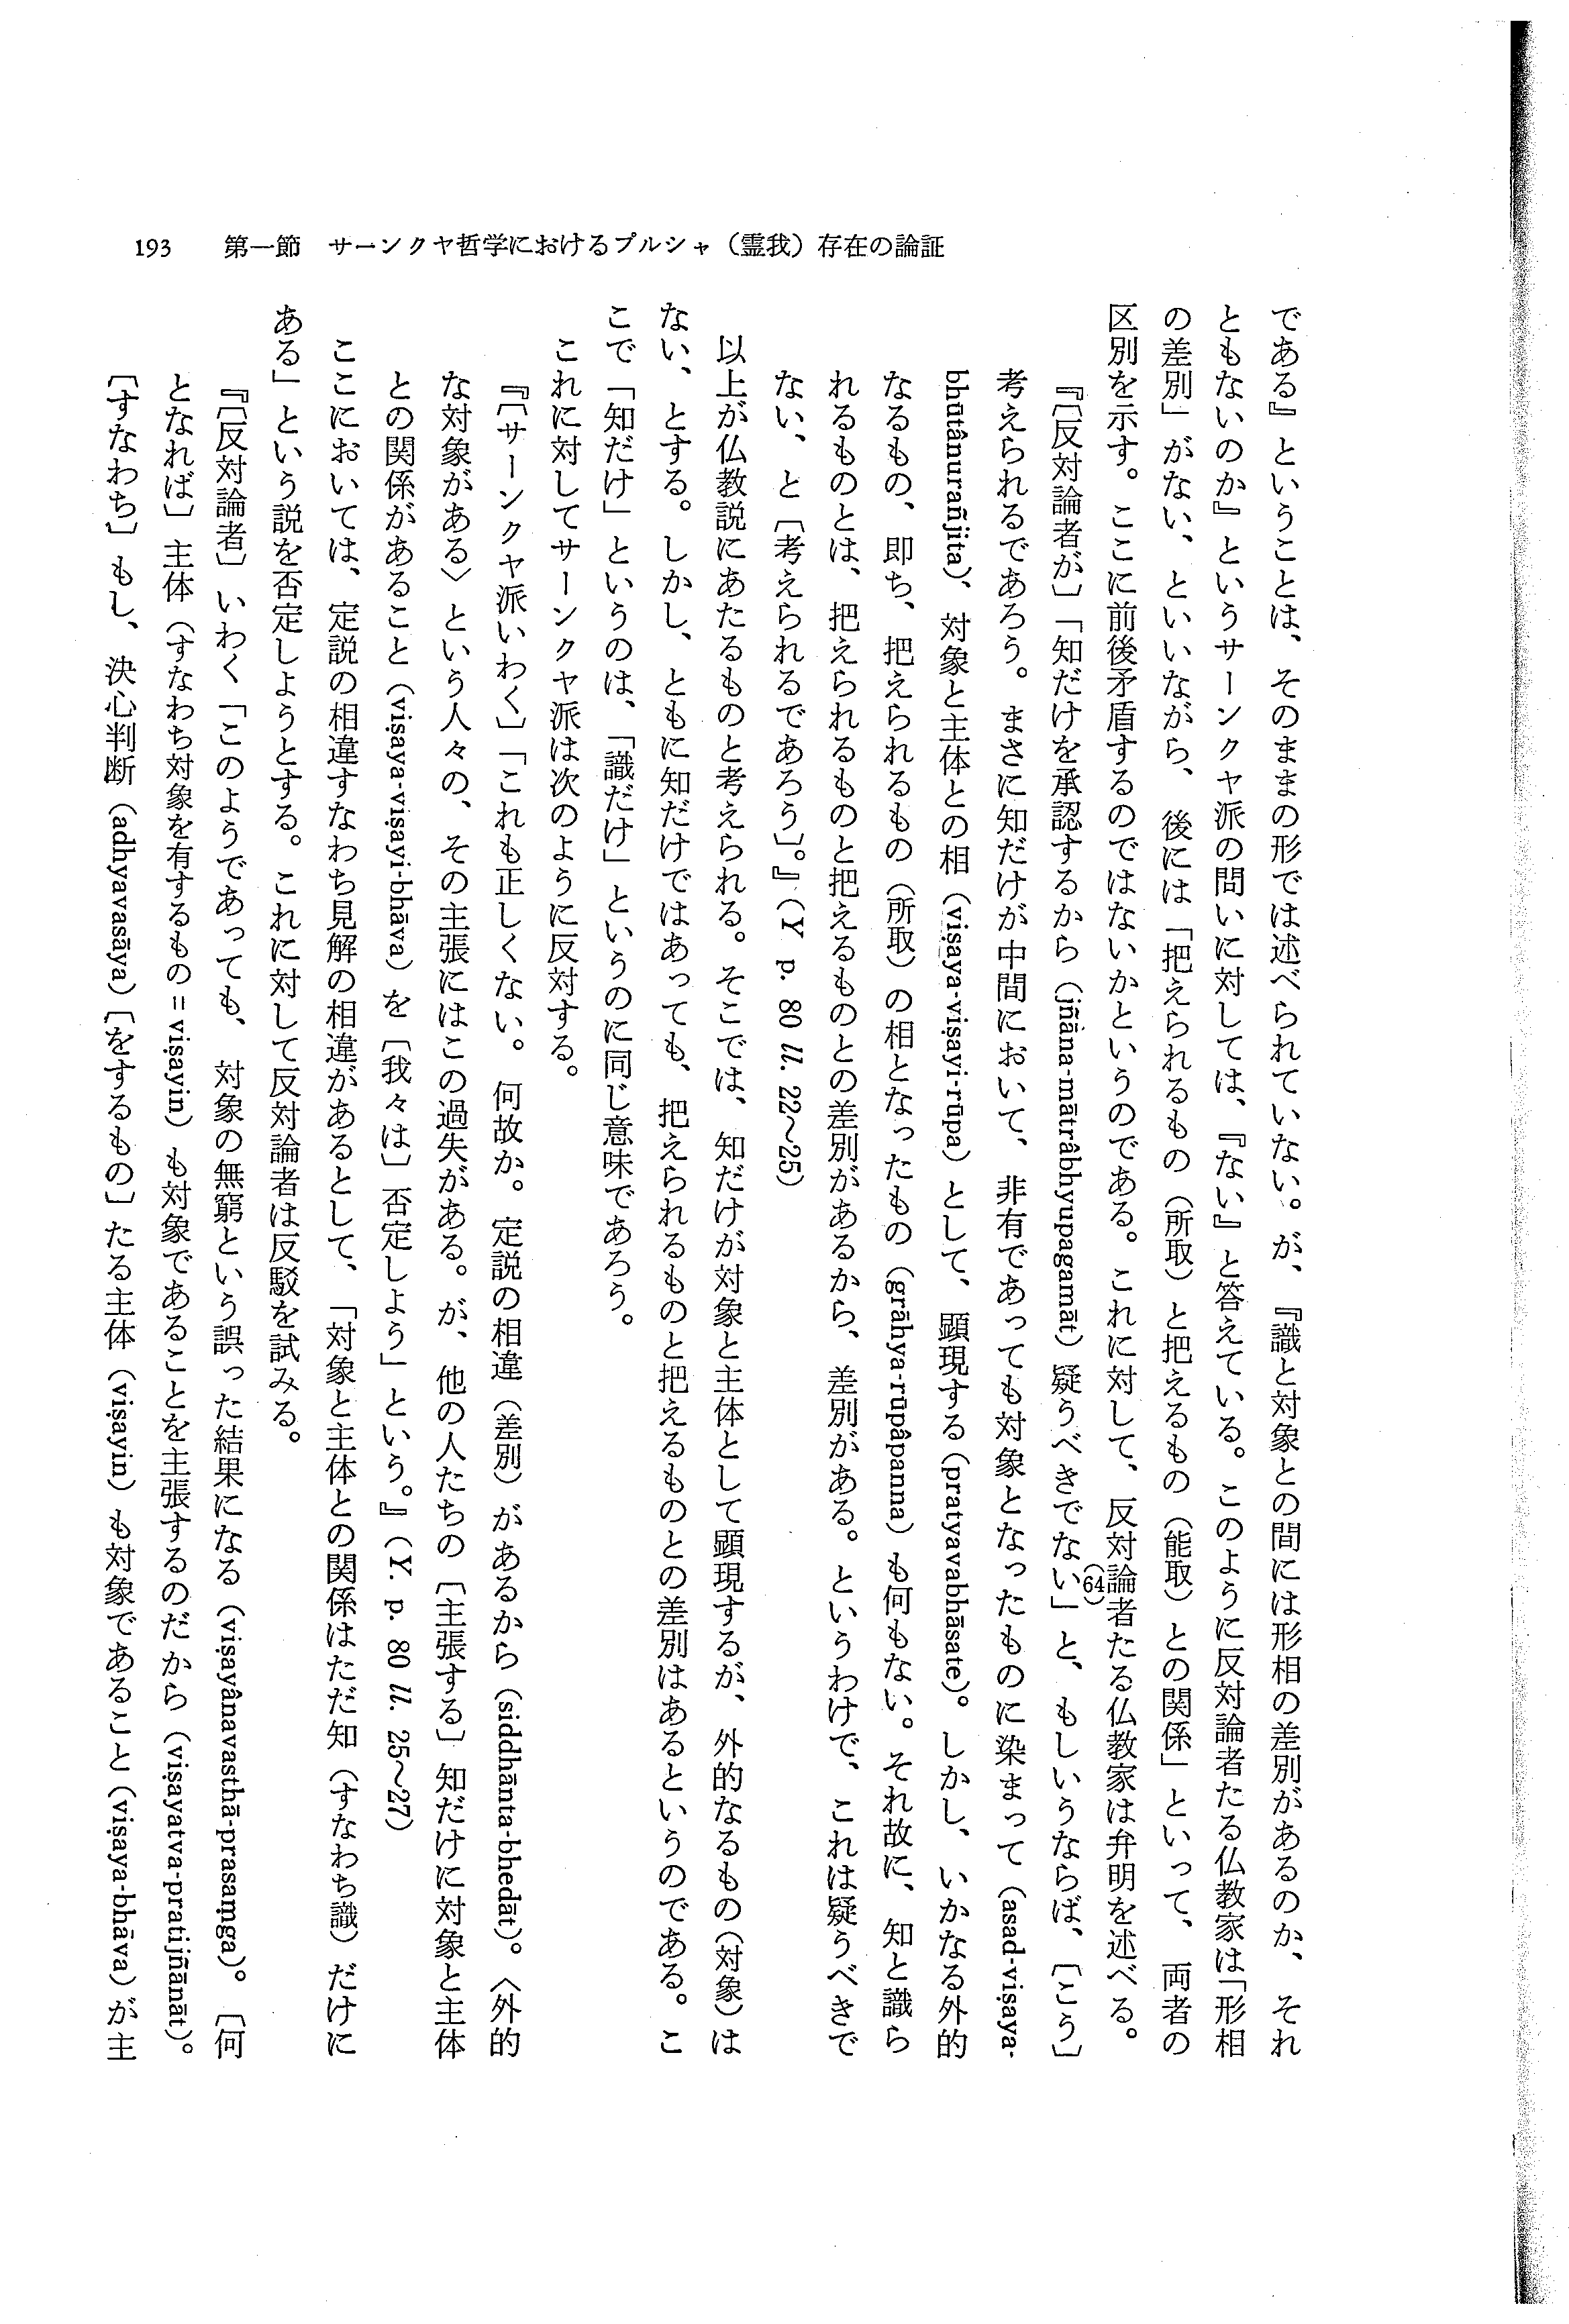 193　第一節　サーンクヤ哲学におけるプルシャ（霊我）存在の論証
である』ということは、そのままの形では述べられていない。が、『識と対象との間には形相の差別があるのか、それ
ともないのか』というサーンクヤ派の問いに対しては、『ない』と答えている。このように反対論者たる仏教家は「形相
の差別」がない、といいながら、後には「把えられるもの（所取）と把えるもの（能取）との関係」といって、両者の
区別を示す。ここに前後矛盾するのではないかというのである。これに対して、反対論者たる仏教家は弁明を述べる。
『〔反対論者が〕「知だけを承認するから（jñāna-mātrâbhyupagamāt）疑うべきでない(64)」と、もしいうならば、〔こう〕
考えられるであろう。まさに知だけが中間において、非有であっても対象となったものに染まって（asad-viṣaya-
bhūtânurañjita）、対象と主体との相（viṣaya-viṣayi-rūpa）として、顕現する（pratyavabhāsate）。しかし、いかなる外的
なるもの、即ち、把えられるもの（所取）の相となったもの（grāhya-rūpâpanna）も何もない。それ故に、知と識ら
れるものとは、把えられるものと把えるものとの差別があるから、差別がある。というわけで、これは疑うべきで
ない、と〔考えられるであろう〕。』（Y p. 80 ll. 22～25）
以上が仏教説にあたるものと考えられる。そこでは、知だけが対象と主体として顕現するが、外的なるもの（対象）は
ない、とする。しかし、ともに知だけではあっても、把えられるものと把えるものとの差別はあるというのである。こ
こで「知だけ」というのは、「識だけ」というのに同じ意味であろう。
これに対してサーンクヤ派は次のように反対する。
『〔サーンクヤ派いわく〕「これも正しくない。何故か。定説の相違（差別）があるから（siddhānta-bhedāt）。〈外的
な対象がある〉という人々の、その主張にはこの過失がある。が、他の人たちの〔主張する〕知だけに対象と主体
との関係があること（viṣaya-viṣayi-bhāva）を〔我々は〕否定しよう」という。』（Y. p. 80 ll. 25～27）
ここにおいては、定説の相違すなわち見解の相違があるとして、「対象と主体との関係はただ知（すなわち識）だけに
ある」という説を否定しようとする。これに対して反対論者は反駁を試みる。
『〔反対論者〕いわく「このようであっても、対象の無窮という誤った結果になる（viṣayânavasthā-prasaṃga）。〔何
となれば〕主体（すなわち対象を有するもの＝viṣayin）も対象であることを主張するのだから（viṣayatva-pratijñānāt）。
〔すなわち〕もし、決心判断（adhyavasāya）〔をするもの〕たる主体（viṣayin）も対象であること（viṣaya-bhāva）が主